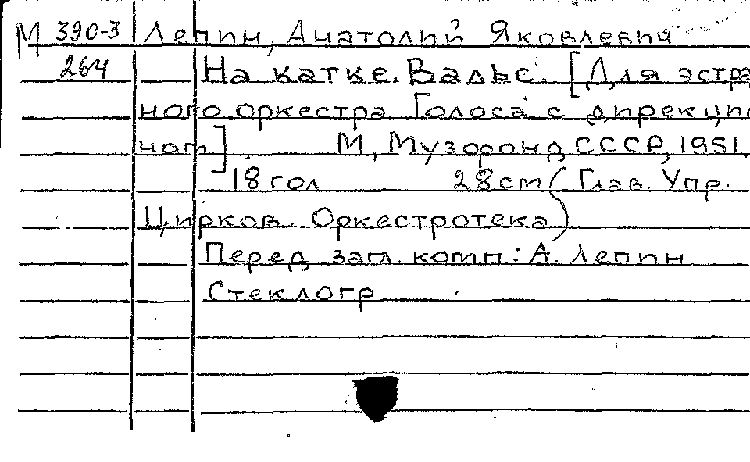 М 390-3 Лепин, Анатолий Яковлевич
264 На катке. Вальс. [Для эстра
ного оркестра Голоса с дирекцио
ном] М, Музфонд СССР, 1951.
18 гол 28 cm (Глав. Упр.
Цирков. Оркестротека)
Перед заг. комп: А. Лепин
Стеклогр